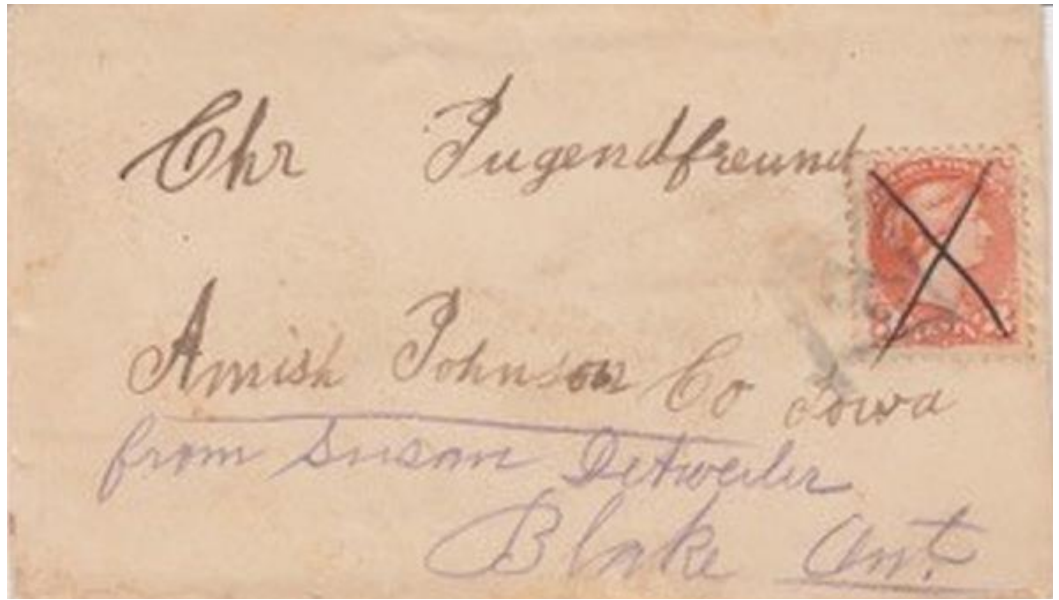 Chr Jugendfreund
Amish Johnson Co Iowa
from Susan Detweiler
Blake Ont.